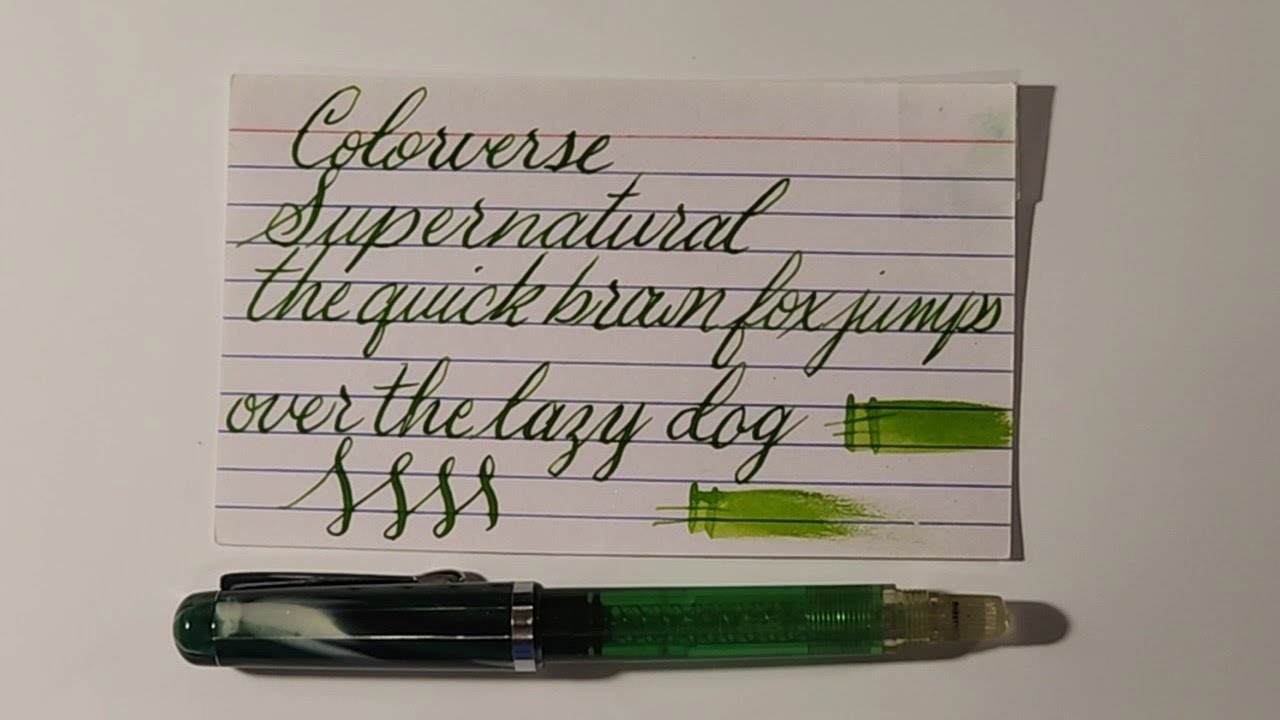 Colorverse
Supernatural
the quick brown fox jumps
over the lazy dog